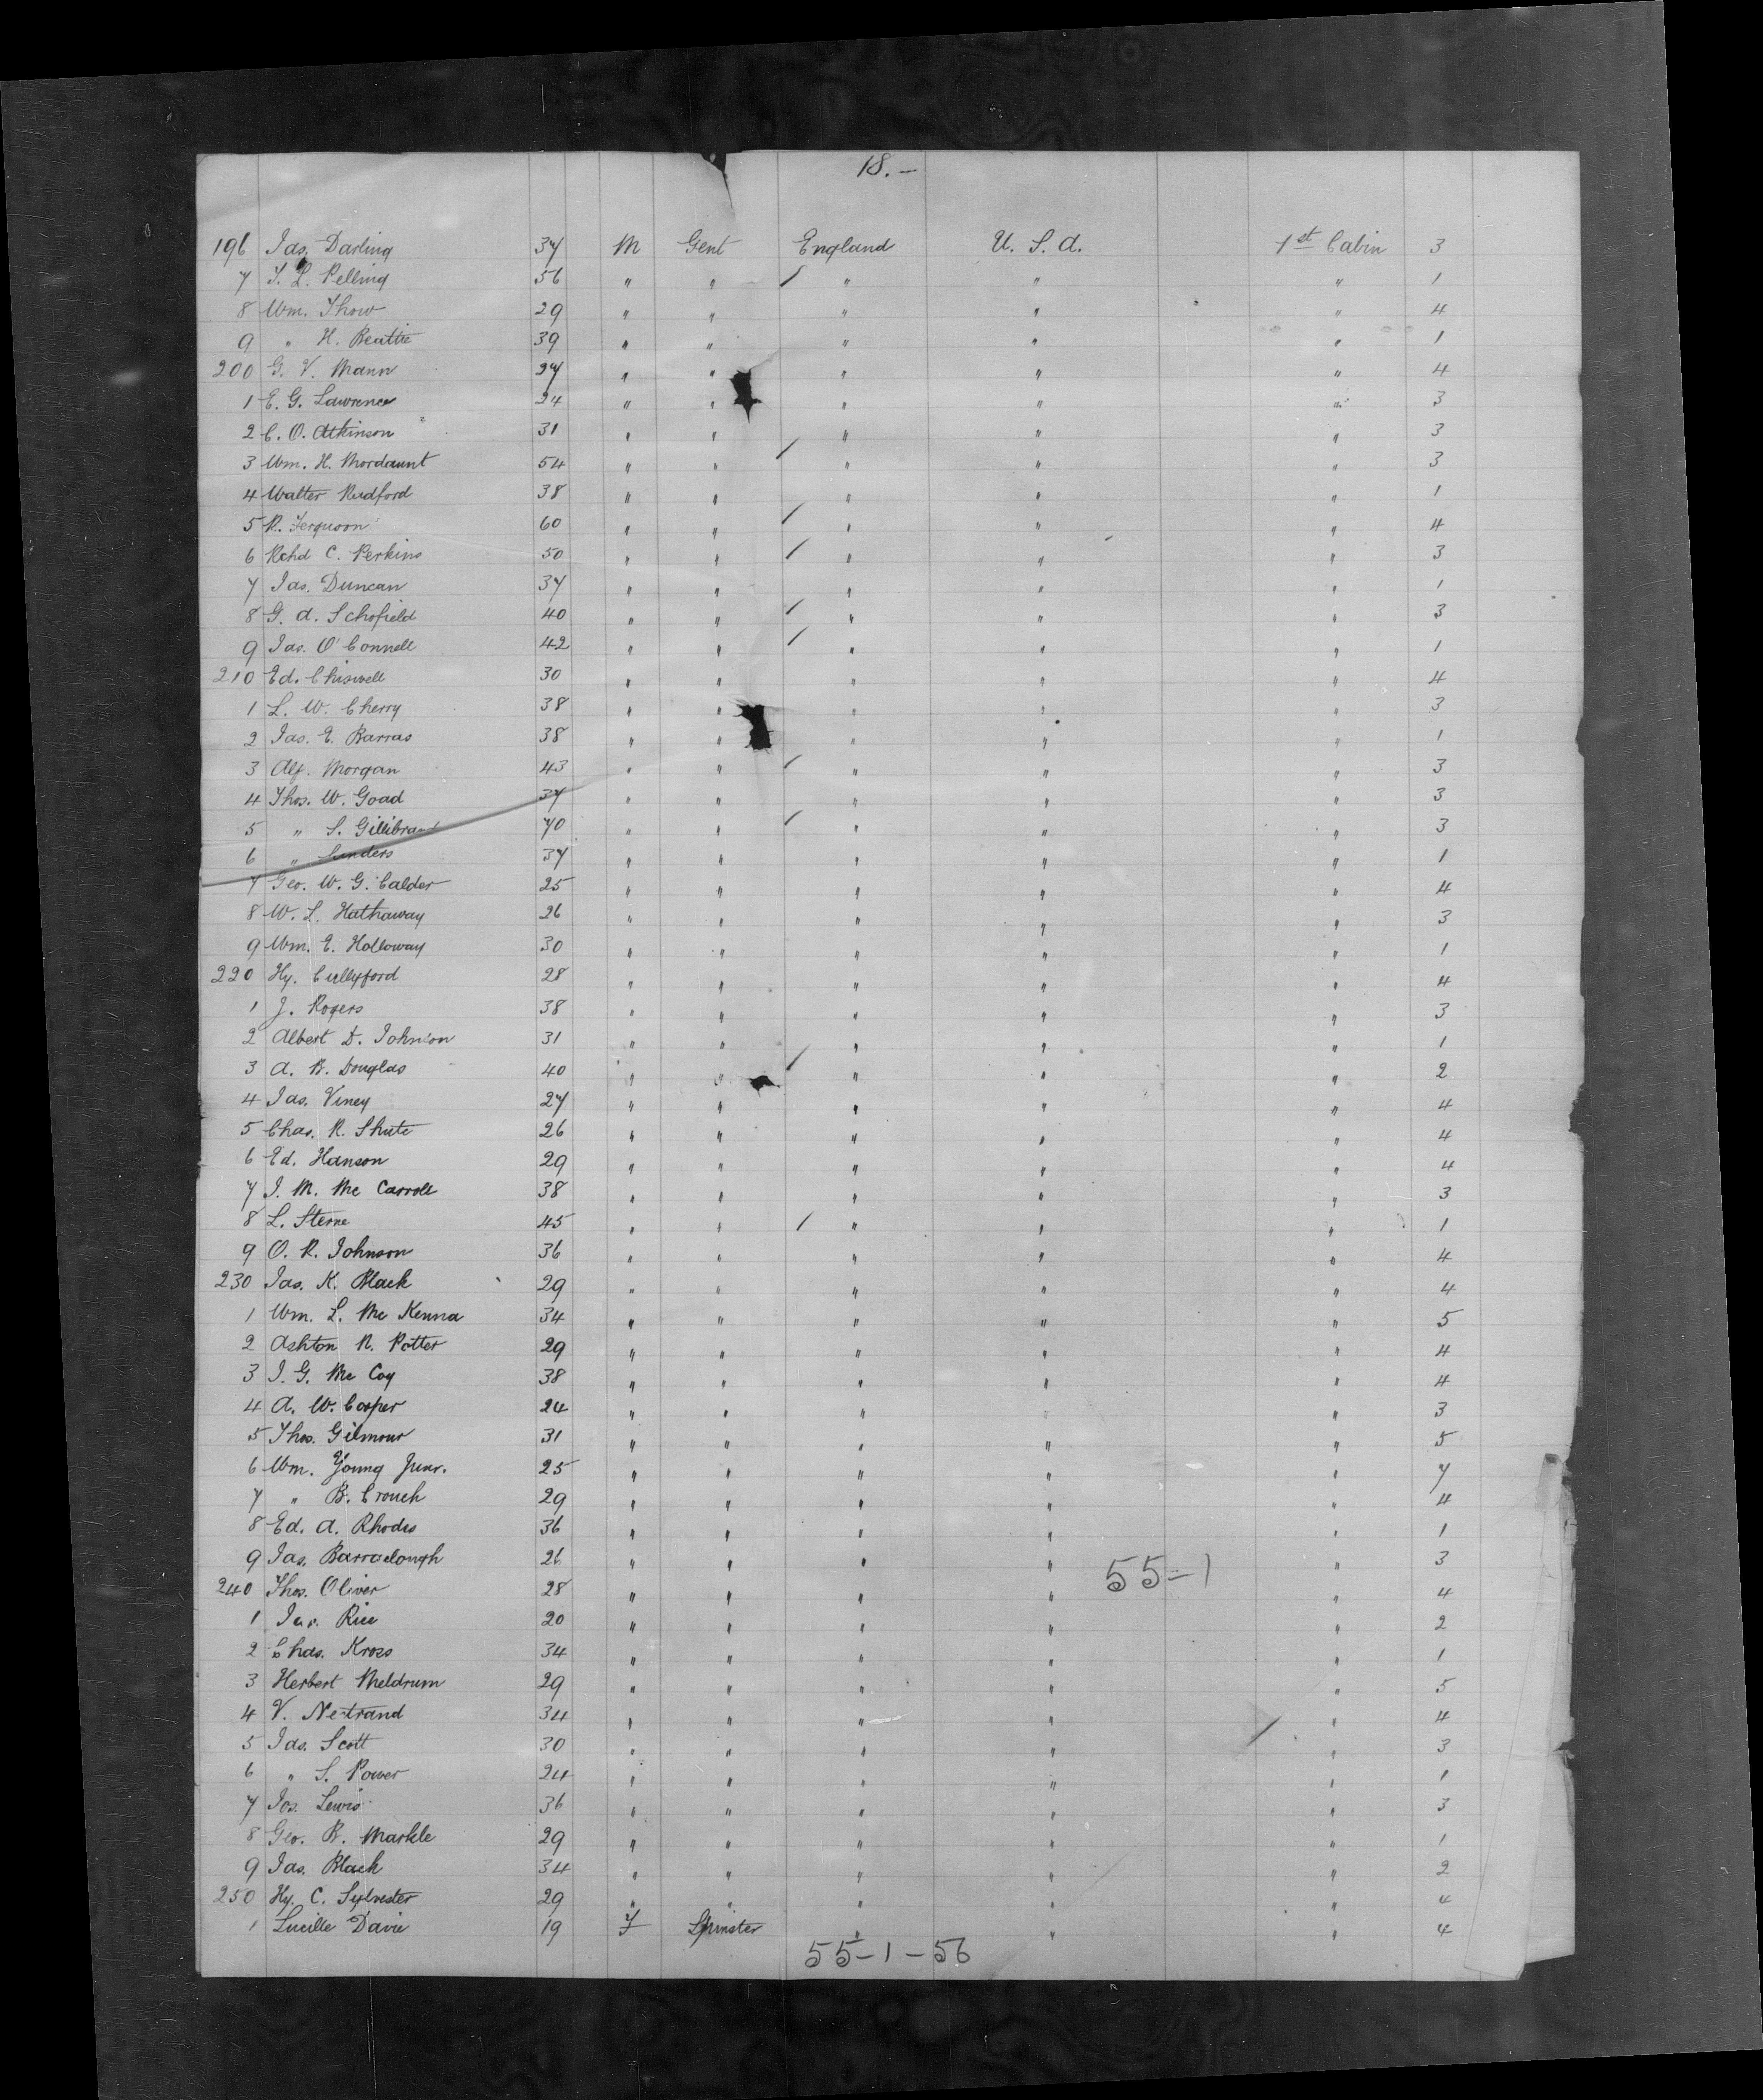 18.-
196 Jas. Darling 37 M Gent England U. S. A. 1st Cabin 3
7 T. L. Pelling 56 " " " " " 1
8 Wm. Thow 29 " " " " " 4
9 " H. Beattie 39 " " " " " 1
200 G. V. Mann 27 " " " " " 4
1 E. G. Lawrence 24 " " " " " 3
2 C. O. Atkinson 31 " " " " " 3
3 Wm. H. Mordaunt 54 " " " " " 3
4 Walter Rudford 38 " " " " " 1
5 R. Ferguson 60 " " " " " 4
6 Rchd C. Perkins 50 " " " " " 3
7 Jas. Duncan 37 " " " " " 1
8 G. A. Schofield 40 " " " " " 3
9 Jas. O'Connell 42 " " " " " 1
210 Ed. Chiswell 30 " " " " " 4
1 L. W. Cherry 38 " " " " " 3
2 Jas. E. Barras 38 " " " " " 1
3 Alf. Morgan 43 " " " " " 3
4 Thos. W. Goad 37 " " " " " 3
5 " S. Gillibrand 70 " " " " " 3
6 " Sanders 37 " " " " " 1
7 Geo. W. G. Calder 25 " " " " " 4
8 W. L. Hathaway 26 " " " " " 3
9 Wm. E. Holloway 30 " " " " " 1
220 Hy. Cullyford 28 " " " " " 4
1 J. Rogers 38 " " " " " 3
2 Albert D. Johnson 31 " " " " " 1
3 A. B. Douglas 40 " " " " " 2
4 Jas. Viney 27 " " " " " 4
5 Chas. R. Shute 26 " " " " " 4
6 Ed. Hanson 29 " " " " " 4
7 J. M. Mc Carroll 38 " " " " " 3
8 L. Sterne 45 " " " " " 1
9 O. R. Johnson 36 " " " " " 4
230 Jas. K. Black 29 " " " " " 4
1 Wm. L. Mc Kenna 34 " " " " " 5
2 Ashton R. Potter 29 " " " " " 4
3 J. G. Mc Coy 38 " " " " " 4
4 A. W. Cooper 24 " " " " " 3
5 Thos. Gilmour 31 " " " " " 5
6 Wm. Young Junr. 25 " " " " " 7
7 " B. Crouch 29 " " " " " 4
8 Ed. A. Rhodes 36 " " " " " 1
9 Jas. Barraclough 26 " " " " " 3
55-1
240 Thos. Oliver 28 " " " " " 4
1 Jas. Rice 20 " " " " " 2
2 Chas. Kross 34 " " " " " 1
3 Herbert Meldrum 29 " " " " " 5
4 V. Nestrand 34 " " " " " 4
5 Jas. Scott 30 " " " " " 3
6 " S. Power 24 " " " " " 1
7 Jos. Lewis 36 " " " " " 3
8 Geo. B. Markle 29 " " " " " 1
9 Jas. Black 34 " " " " " 2
250 Hy. C. Sylvester 29 " " " " " 4
1 Lucille Davie 19 F Spinster " " " 4
55-1-56